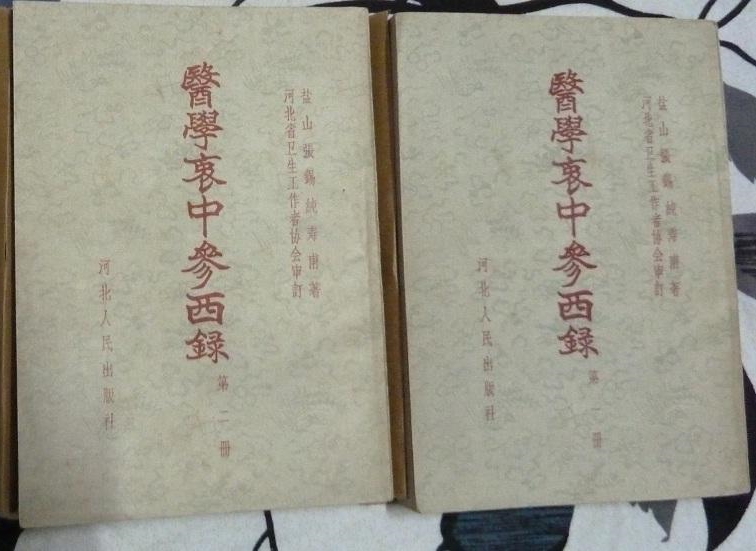 盐山張錫純寿甫著
河北省卫生工作者协会审訂
醫學衷中參西録
第二册
河北人民出版社
盐山張錫純寿甫著
河北省卫生工作者协会审訂
醫學衷中參西録
第一册
河北人民出版社